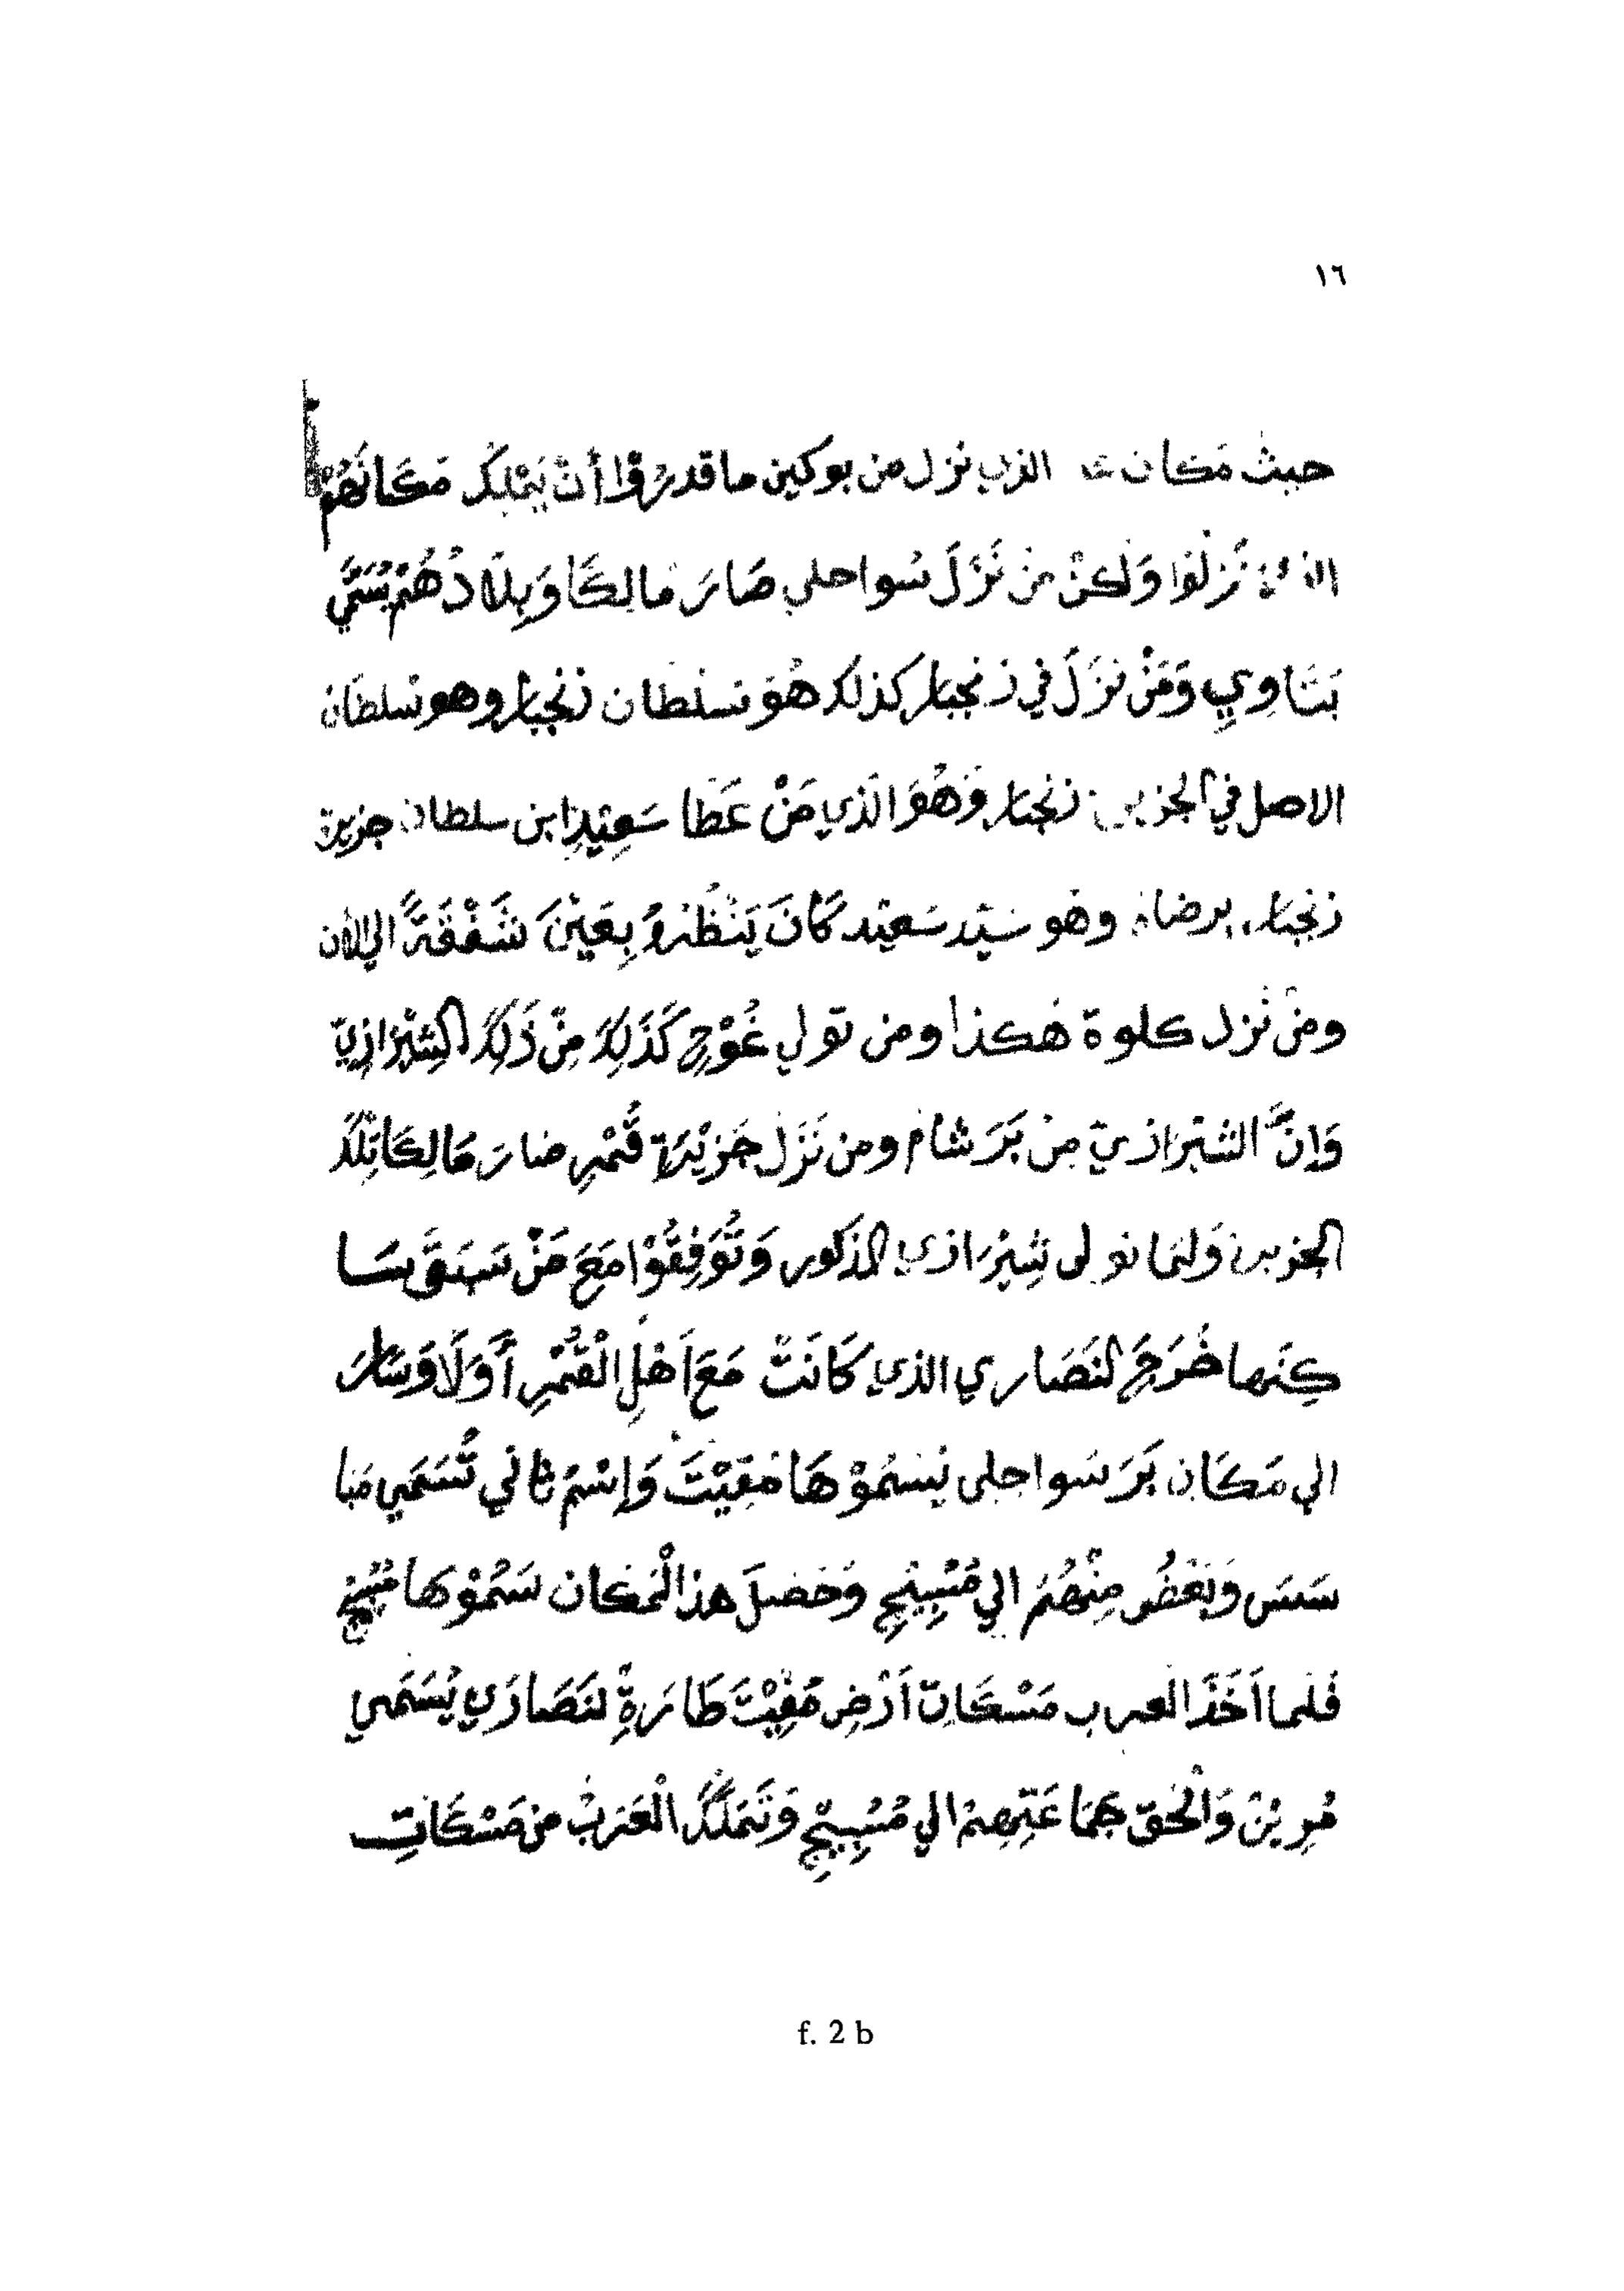 ١٦
حيث مكان الذي نزل من بوكين ما قدرُوا أَنْ يَمْلِكُ مَكَانَهُمْ
نَزلُوا وَلَكِنْ مَن نَزَلَ سُواحلي صَارَ مَالِكًا وَبِلَادُهُمْ يُسَمَّي
بَتَاوِيِ وَمَنْ نَزَلَ في زنجبار كذلك هُوَ سلطان زنجبار وهو سلطان
الاصل في زنجبار وَهُوَ الَذي مَنْ عَطَا سَعِيْدِ ابن سلطان جزيرة
زنجبار برضاه وهو سَيِّد سَعِيْد كَانَ يَنْظُرُ بِعَيْنَ شَفْقَةً الي الان
ومن نزل كلوة هكذا ومن تولي غُوْجِ كَذَلِكَ مِنْ ذَلِكَ الشِيْرَازِيّ
وَاِنَّ الشيْرَازيّ مِنْ بَرَ شام ومن نَزَلَ جَزِيْرَة قُمْرِ صَارَ مَالِكًا تِلْكَ
وَلمَا تولى شِيْرَازي المذكور وَتُوَفِقُوْا مَعَ مَنْ سَبَقَ بسَا
كِنَها خَرَجَ لنَصَاري الذي كَانَتْ مَعَ اَهْلِ الْقُمْرِ أَوَلَا وَسَارَ
الي مَكَان بَرَ سَواحِلى يُسَمُوْهَا مَغِيْتَ وَاِسْمُ ثاني تُسَمَي مَبا
سَسَ وَبَعْضُ مِنْهُمْ الي مُسُبِيْجِ وَحَصَلَ هذ الْمَكان سَمُوْهَا مُسُبِيْجِ
فَلما اَخَذَ العرب مَسْكَان اَرْضِ مُغِيْتَ طَارَةِ لنَصَارَي يُسَمَي
مُرِيْنَ وَالْحقّ جَمَاعَتِهِمْ الي مُسُبِيْجِ وَتَمَلَكَ الْعَرَبُ من مَسْكَاتِ
f. 2 b